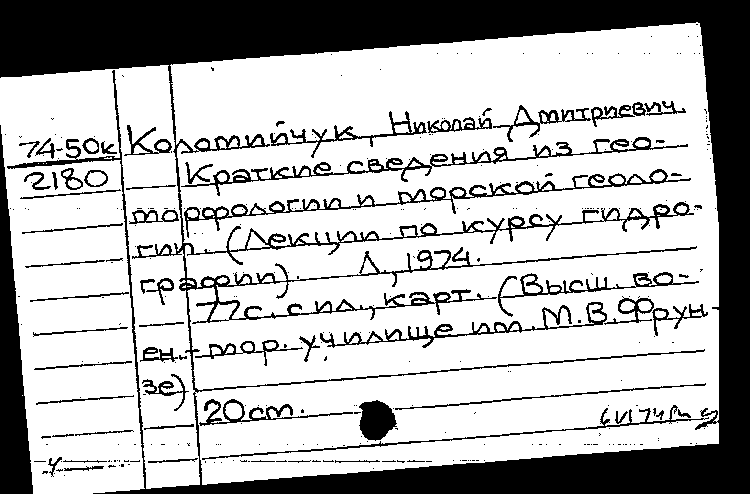 74-50к Коломийчук, Николай Дмитриевич.
2180 Краткие сведения из гео-
морфологии и морской геоло-
гии. (Лекции по курсу гидро-
графии). Л., 1974.
77с. с ил., карт. (Высш. во-
ен.-мор. училище им. М.В.Фрун-
зе)
20см.